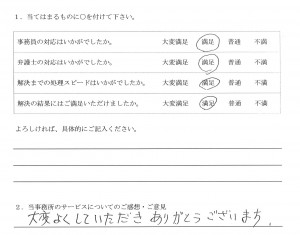 1．当てはまるものに○を付けて下さい。
事務員の対応はいかがでしたか。 大変満足 満足 普通 不満
弁護士の対応はいかがでしたか。 大変満足 満足 普通 不満
解決までの処理スピードはいかがでしたか。 大変満足 満足 普通 不満
解決の結果にはご満足いただけましたか。 大変満足 満足 普通 不満
よろしければ、具体的にご記入ください。
2．当事務所のサービスについてのご感想・ご意見
大変よくしていただきありがとうございます。